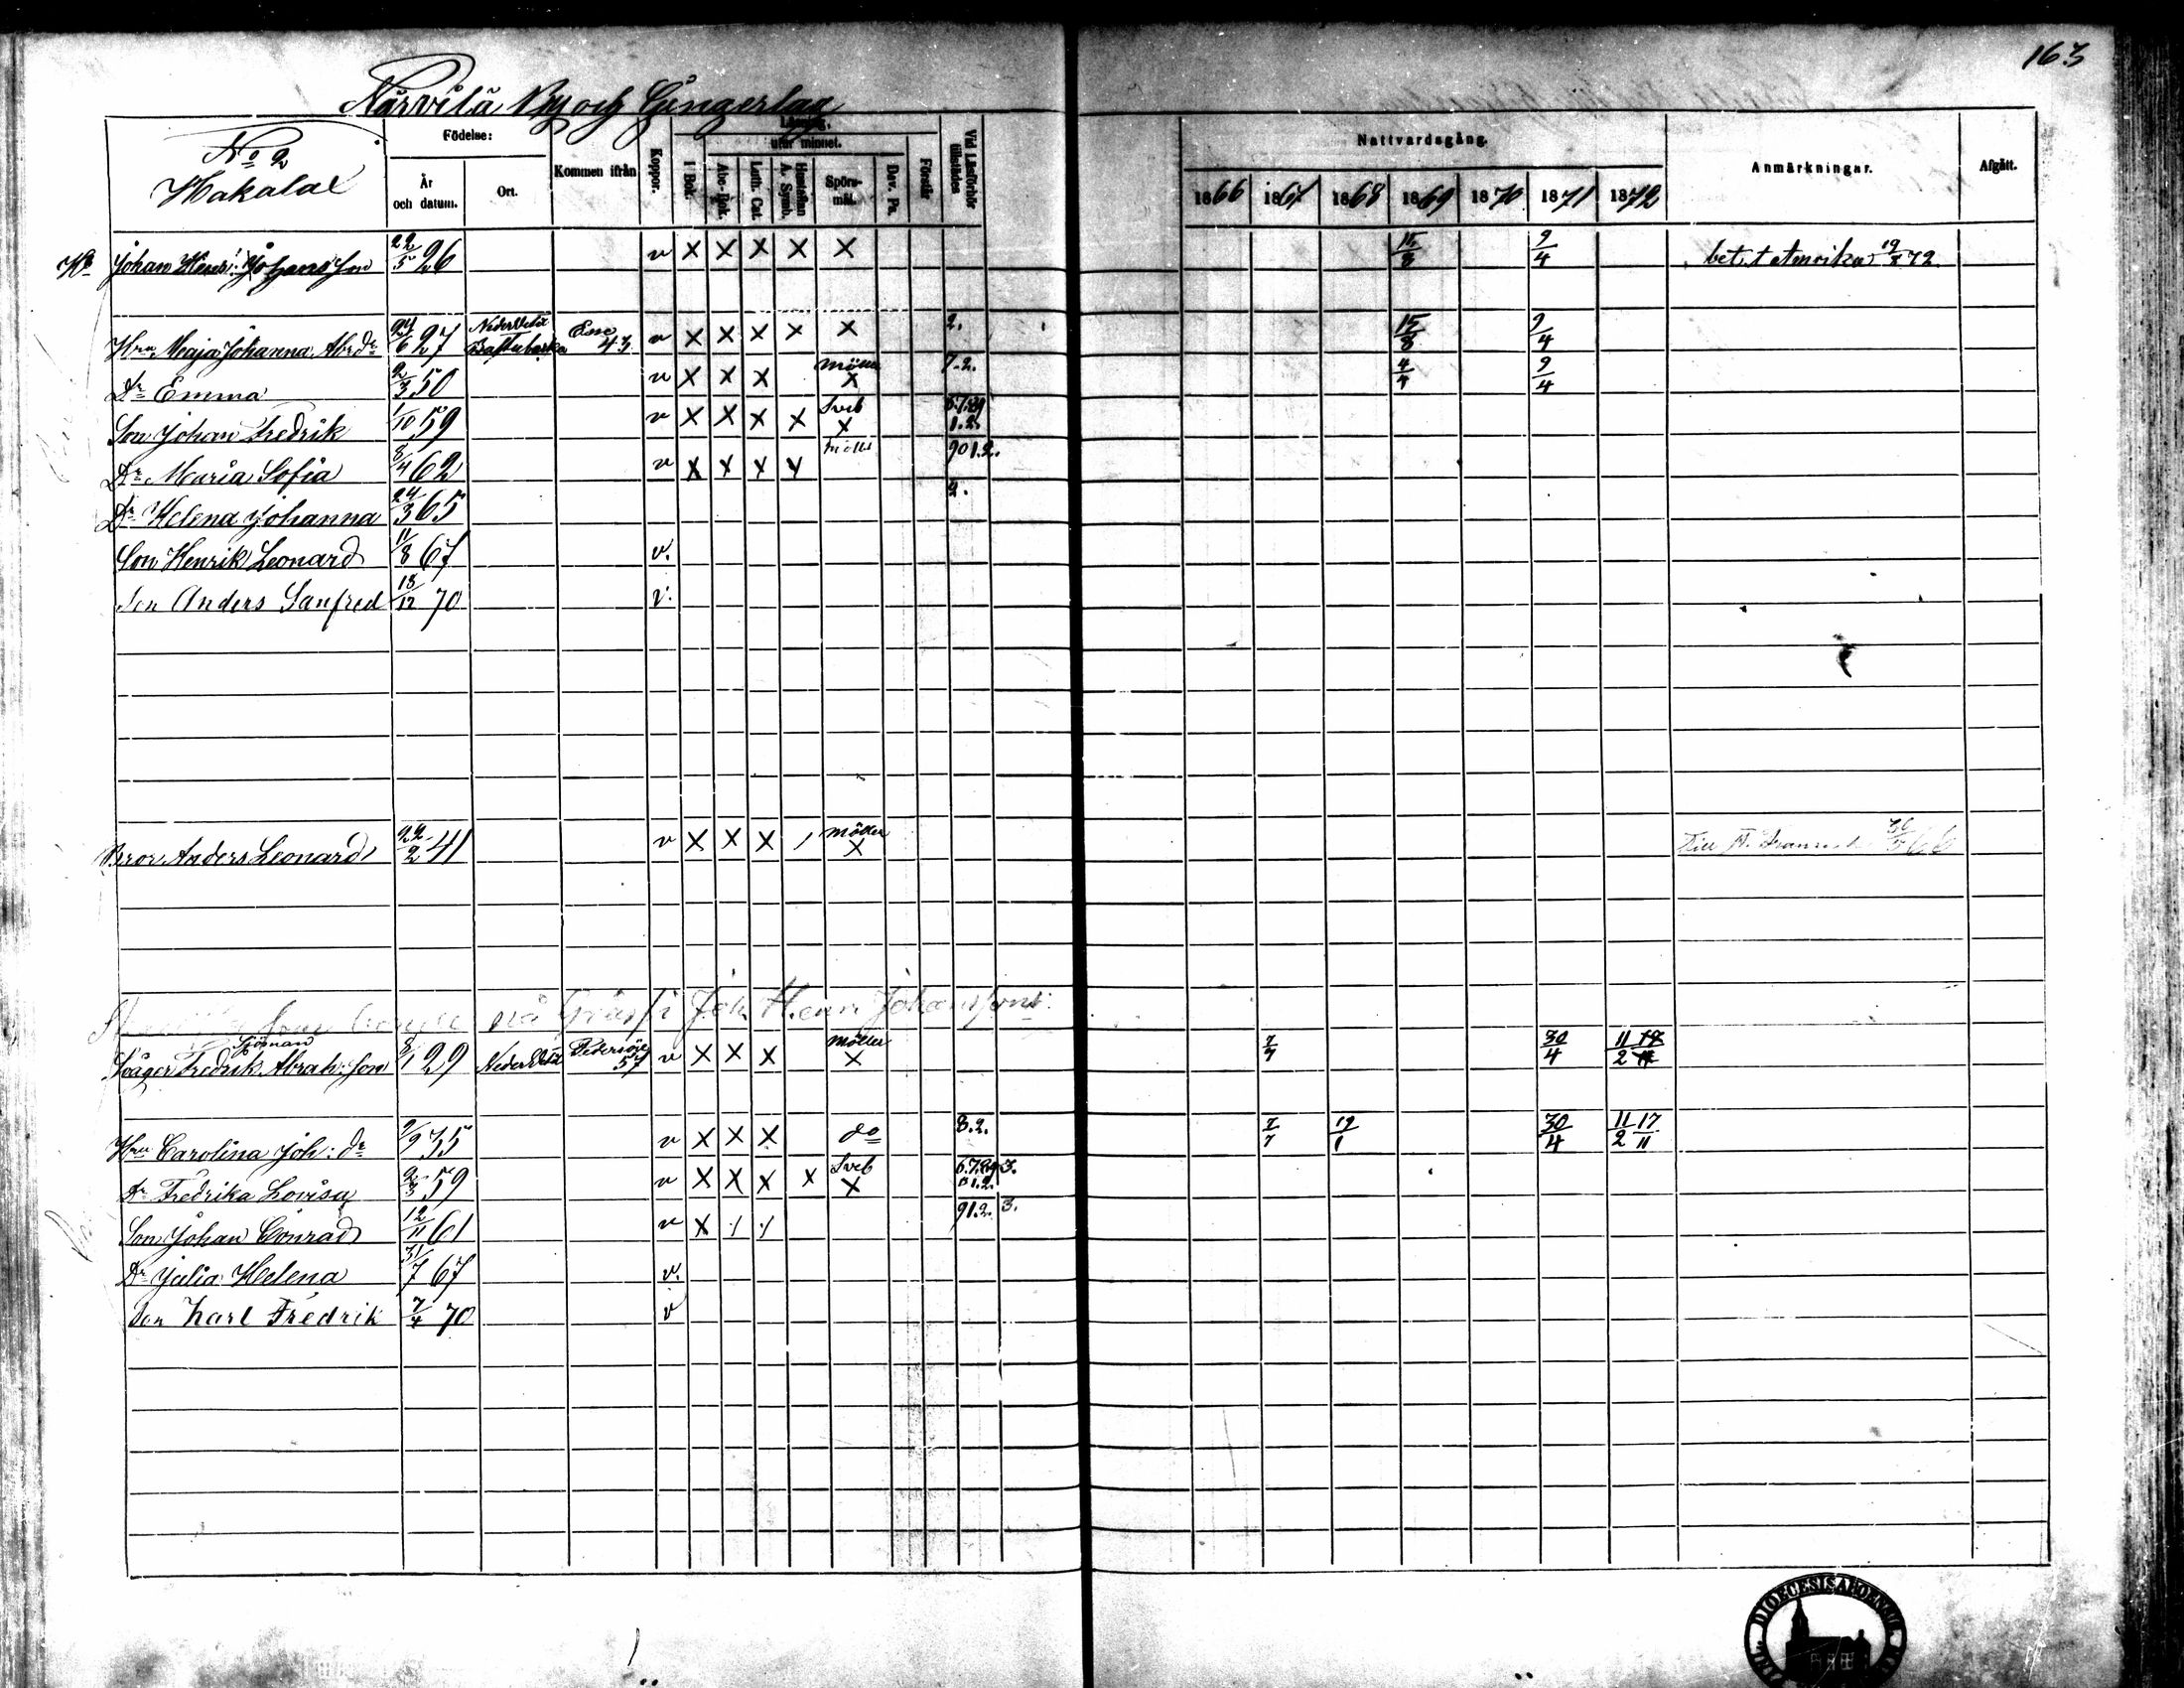 163
Närvilä By och Gingerlag
No 2
Hakala
Födelse:
År och datum.
Ort.
Kommen ifrån
Koppor.
I Bok.
utur minnet.
Abc-Bok.
Luth. Cat.
Hustaflan A. Symb.
Spörs-mål.
Dav. Ps.
Förstår
Vid Läsförhör tillstädes
Nattvardsgång.
1866 1867 1868 1869 1870 1871 1872
Anmärkningar.
Afgått.
Johan Henr: Johansson 22/5 26 v X X X X X 15/8 9/4 bet. t Amerika 72
Hru Maja Johanna Abr.dr 24/6 27 NederVetil 43 v X X X X X 2. 15/8 9/4
Dr Emma 2/3 50 v X X X Möller X 7.2. 4/4 9/4
Son Johan Fredrik 1/10 59 v X X X X Sveb X 1.2.
Dr Maria Sofia 8/4 62 v X X X X Möller 901.2.
Dr Helena Johanna 24/3 65 2.
Son Henrik Leonard 11/8 67 v.
Son Anders Sanfred 18/12 70 v.
Bror Anders Leonard 22/2 41 v X X X / Möller X 66
på Joh. Henr. Johanssons
Sjöman
Svåger Fredrik Abrah:son 8/1 29 NederVetil Pedersöre 57 v X X X Möller X 7/7 30/4 11/2
Hru Carolina Joh: dr 9/9 35 v X X X do 8.2. 7/7 19/1 30/4 11/2 17/11
Dr Fredrika Lovisa 2/3 59 v X X X X Sveb X 3.
Son Johan Conrad 12/11 61 v X / / 91.2. 3.
Dr Julia Helena 31/7 67 v.
Son Karl Fredrik 7/4 70 v
DIOECESIS ABOENSIS